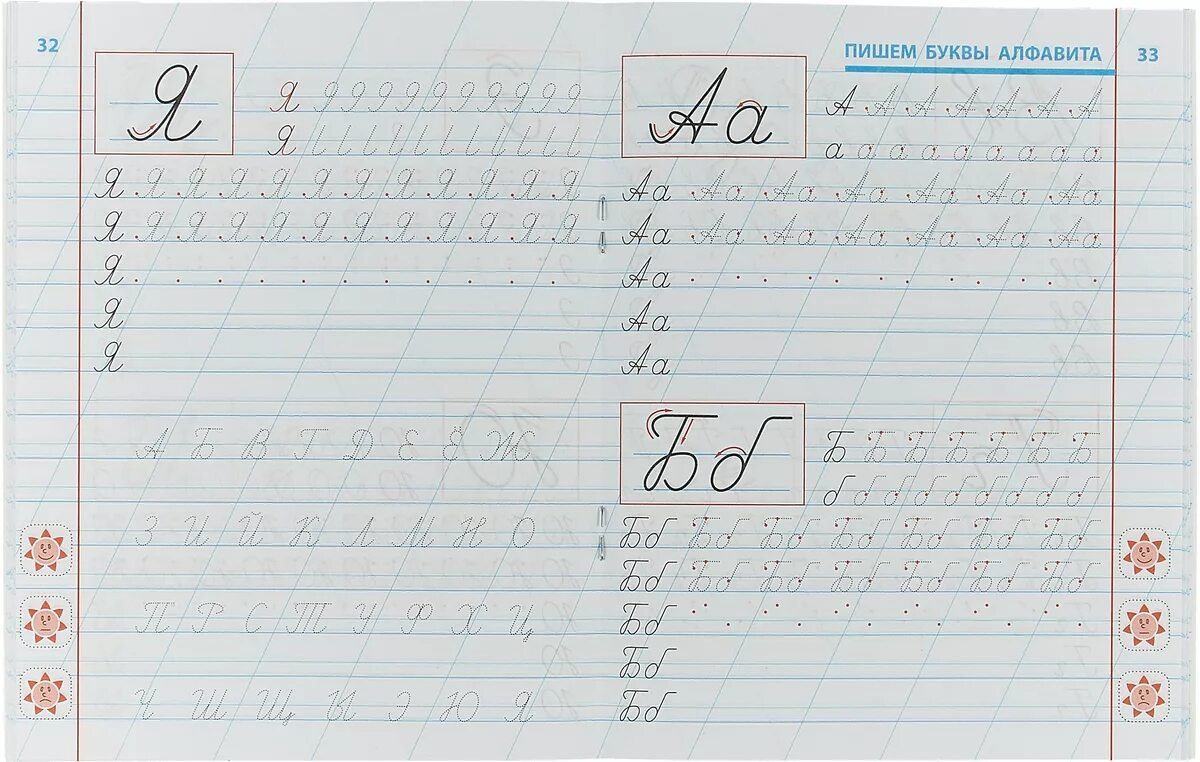 32
Я
Я
Я
Я Я Я Я Я Я Я Я Я Я Я Я
Я Я Я Я Я Я Я Я Я Я Я Я
Я
Я
Я
А Б В Г Д Е Ё Ж
З И Й К Л М Н О
П Р С Т У Ф Х Ц
Ч Ш Щ Ы Э Ю Я
ПИШЕМ БУКВЫ АЛФАВИТА 33
Аа
А А А А А А А
а а а а а а а а а
Аа Аа Аа Аа Аа Аа Аа
Аа Аа Аа Аа Аа Аа Аа
Аа
Аа
Аа
Бб
Б Б Б Б Б Б Б
б б б б б б б б б
Бб Бб Бб Бб Бб Бб Бб
Бб Бб Бб Бб Бб Бб Бб
Бб
Бб
Бб